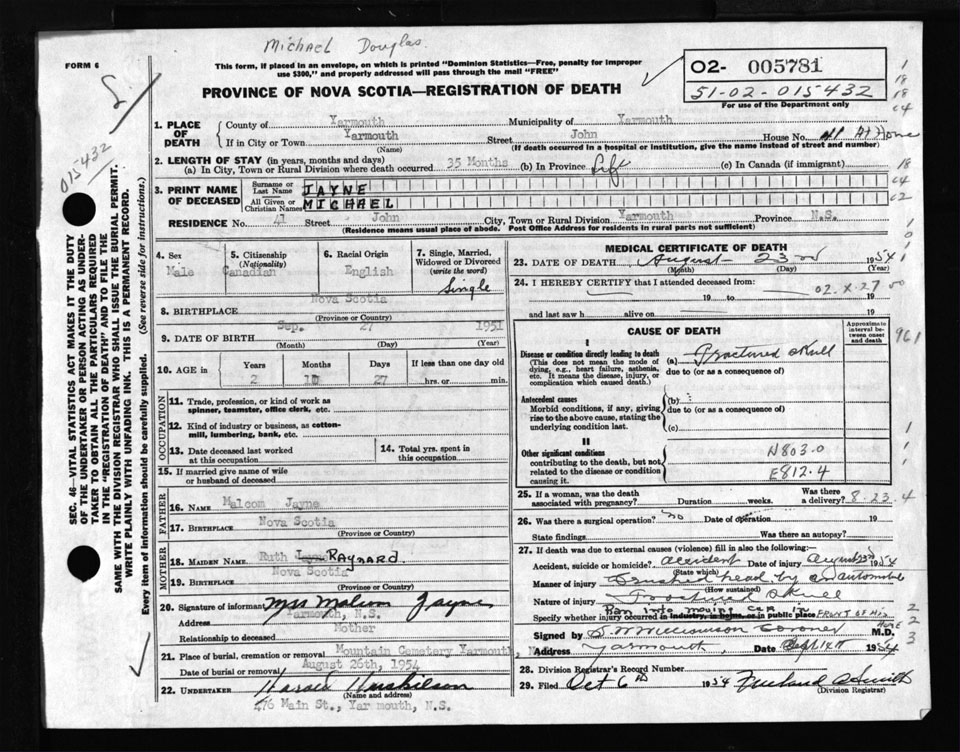 Michael Douglas.
FORM 6
This form, if placed in an envelope, on which is printed "Dominion Statistics—Free, penalty for improper
use $300," and properly addressed will pass through the mail "FREE"
PROVINCE OF NOVA SCOTIA—REGISTRATION OF DEATH
02- 005781
51-02-015432
For use of the Department only
015432
SEC. 46—VITAL STATISTICS ACT MAKES IT THE DUTY
OF THE UNDERTAKER OR PERSON ACTING AS UNDER-
TAKER TO OBTAIN ALL THE PARTICULARS REQUIRED
IN THE "REGISTRATION OF DEATH" AND TO FILE THE
SAME WITH THE DIVISION REGISTRAR WHO SHALL ISSUE THE BURIAL PERMIT.
WRITE PLAINLY WITH UNFADING INK. THIS IS A PERMANENT RECORD.
Every item of information should be carefully supplied. (See reverse side for instructions.)
1. PLACE OF DEATH
County of Yarmouth Municipality of Yarmouth
If in City or Town Yarmouth Street John House No. 41 At Home
(Name) (If death occurred in a hospital or institution, give the name instead of street and number)
2. LENGTH OF STAY (in years, months and days)
(a) In City, Town or Rural Division where death occurred 35 Months (b) In Province Life (c) In Canada (if immigrant)
3. PRINT NAME OF DECEASED
Surname or Last Name JAYNE
All Given or Christian Names MICHAEL
RESIDENCE No. 41 Street John City, Town or Rural Division Yarmouth Province N.S.
(Residence means usual place of abode. Post Office Address for residents in rural parts not sufficient)
4. Sex Male
5. Citizenship (Nationality) Canadian
6. Racial Origin English
7. Single, Married, Widowed or Divorced (write the word) Single
8. BIRTHPLACE Nova Scotia
(Province or Country)
9. DATE OF BIRTH Sep. 27 1951
(Month) (Day) (Year)
10. AGE in Years Months Days If less than one day old
2 10 27 hrs. or min.
OCCUPATION
11. Trade, profession, or kind of work as
spinner, teamster, office clerk, etc.
12. Kind of industry or business, as cotton-
mill, lumbering, bank, etc.
13. Date deceased last worked
at this occupation
14. Total yrs. spent in
this occupation
15. If married give name of wife
or husband of deceased
FATHER
16. NAME Malcom Jayne
17. BIRTHPLACE Nova Scotia
(Province or Country)
MOTHER
18. MAIDEN NAME Ruth Raynard.
19. BIRTHPLACE Nova Scotia
(Province or Country)
20. Signature of informant Mrs Malcom Jayne
Address Yarmouth, N.S.
Relationship to deceased Mother
21. Place of burial, cremation or removal Mountain Cemetery Yarmouth, N
Date of burial or removal August 26th, 1954
22. UNDERTAKER
(Name and address)
476 Main St., Yarmouth, N.S.
MEDICAL CERTIFICATE OF DEATH
23. DATE OF DEATH August 23rd 1954
(Month) (Day) (Year)
24. I HEREBY CERTIFY that I attended deceased from:
02.X.27 00
19 to 19
and last saw h alive on 19
CAUSE OF DEATH
Approximate interval between onset and death
I
Disease or condition directly leading to death
(This does not mean the mode of
dying, e.g., heart failure, asthenia,
etc. It means the disease, injury, or
complication which caused death.)
(a) Fractured Skull
due to (or as a consequence of)
Antecedent causes
Morbid conditions, if any, giving
rise to the above cause, stating the
underlying condition last.
(b)
due to (or as a consequence of)
(c)
II
Other significant conditions
contributing to the death, but not
related to the disease or condition
causing it.
N803.0
E812.4
961
25. If a woman, was the death
associated with pregnancy? Duration weeks. Was there a delivery? 8.23.4
26. Was there a surgical operation? no Date of operation 19
State findings Was there an autopsy?
27. If death was due to external causes (violence) fill in also the following:—
Accident, suicide or homicide? accident Date of injury August 23rd 1954
(State which)
Manner of injury Crushed head by an automobile
(How sustained)
Nature of injury Fractured Skull
Ran into moving car in
Specify whether injury occurred in industry, in home, or in public place FRONT OF HIS HOME
Signed by S. W Williamson Coroner M.D.
Address Yarmouth Date Sept 14th 1954
28. Division Registrar's Record Number
29. Filed Oct 6th 1954
(Division Registrar)